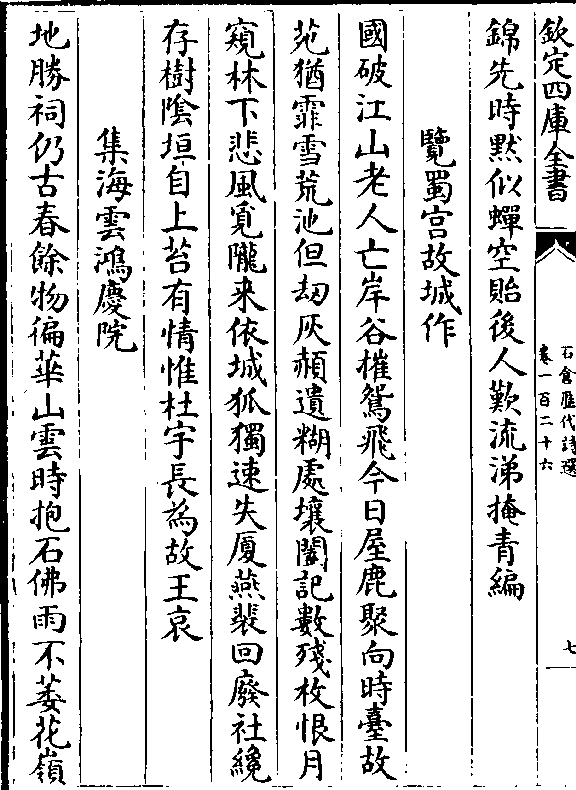 欽定四庫全書
石倉歷代詩選
卷一百二十六
七
錦先時黙似蟬空貽後人歎流涕掩青編
覽蜀宫故城作
國破江山老人亡岸谷摧鴛飛今日屋鹿聚向時臺故
苑猶霏雪荒池但刼灰頳遺糊處壤闔記數殘枚恨月
窺林下悲風覓隴来依城狐獨速失厦燕裴回廢社纔
存樹隂垣自上苔有情惟杜宇長為故王哀
集海雲鴻慶院
地勝祠仍古春餘物徧華山雲時抱石佛雨不萎花嶺